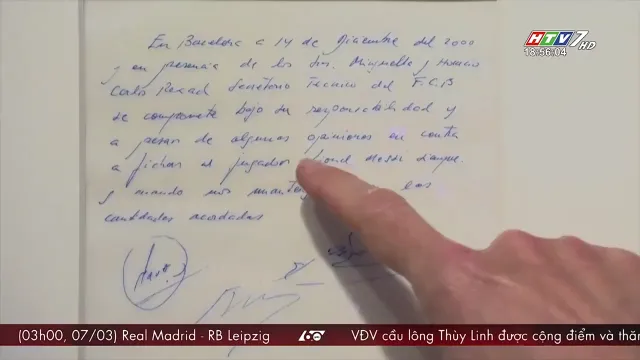 HTV7 HD
18:56:04
En Barcelona a 14 de Diciembre del 2000
y en presencia de los Srs. Minguella y Horacio
Carlos Rexach Secretario Tecnico del F.C.B
se compromete bajo su responsabilidad y
a pesar de algunas opiniones en contra
a fichar al jugador Lionel Messi
y cuando nos las
cantidades acordadas
(03h00, 07/03) Real Madrid - RB Leipzig VĐV cầu lông Thùy Linh được cộng điểm và